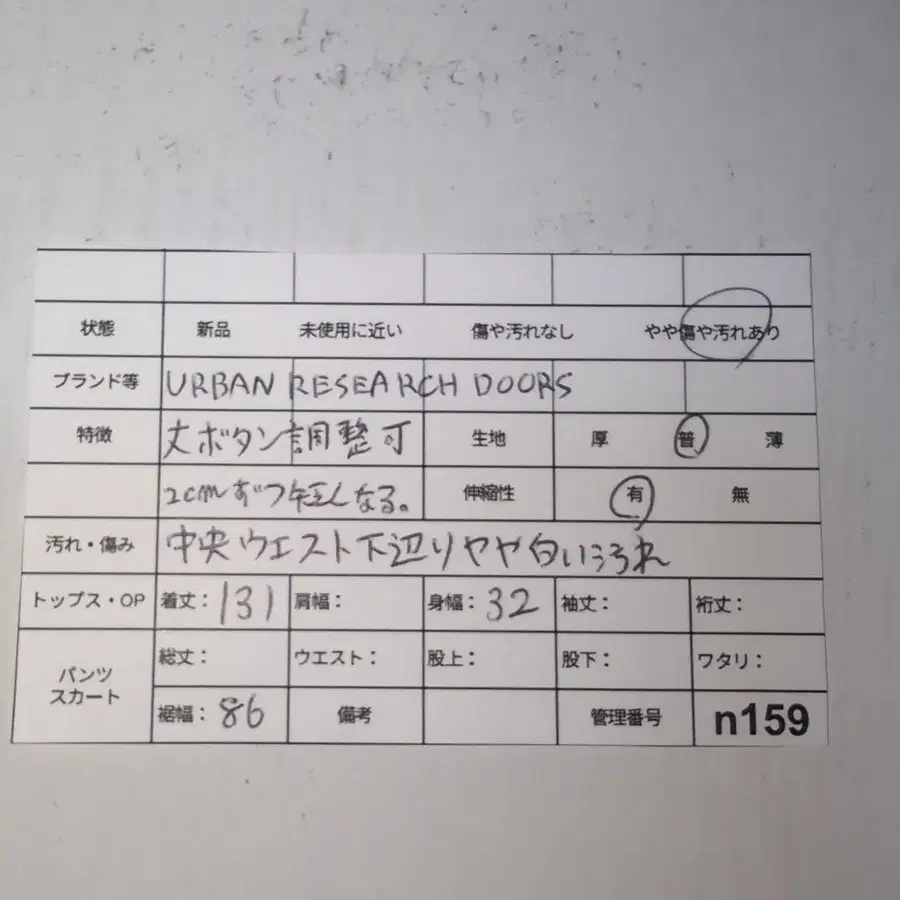 状態 新品 未使用に近い 傷や汚れなし やや傷や汚れあり
ブランド等 URBAN RESEARCH DOORS
特徴 丈ボタン調整可 生地 厚 普 薄
2cmずつ短くなる。 伸縮性 有 無
汚れ・傷み 中央ウエスト下辺りやや白い汚れ
トップス・OP 着丈: 131 肩幅: 身幅: 32 袖丈: 裄丈:
パンツ スカート 総丈: ウエスト: 股上: 股下: ワタリ:
裾幅: 86 備考 管理番号 n159